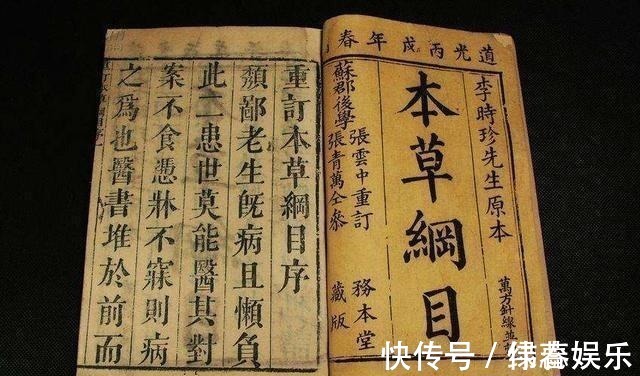 道光丙戌年春
李時珍先生原本
萬方針線並
本草綱目
蘇郡後學
張雲中重訂
張青萬仝參
務本堂
藏版
重訂本草綱目序
頹鄙老生旣病且懶負
此二患世莫能醫其對
案不食憑牀不寐則病
之爲也醫書堆於前而
快传号 / 娱乐